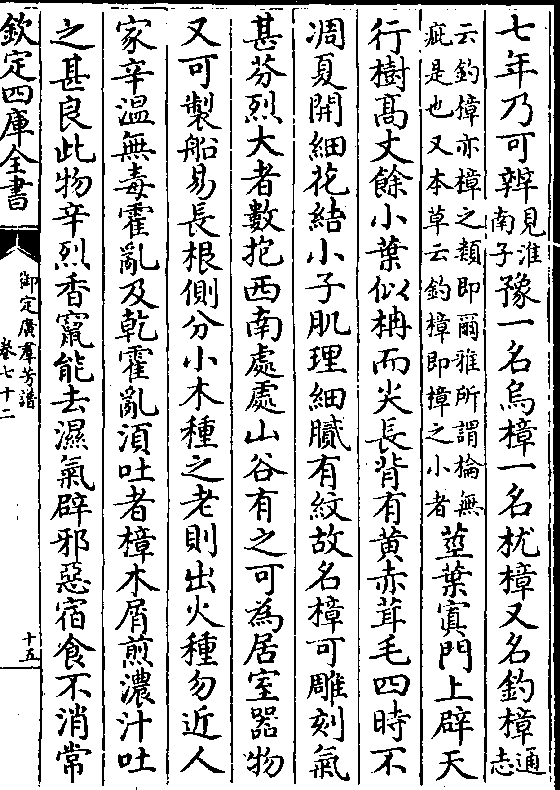 七年乃可辨見淮南子豫一名烏樟一名枕樟又名釣樟通志
云釣樟亦樟之類即爾雅所謂棆無疵是也又本草云釣樟即樟之小者莖葉寘門上辟天
行樹高丈餘小葉似枏而尖長背有黄赤茸毛四時不
凋夏開細花結小子肌理細膩有紋故名樟可雕刻氣
甚芬烈大者數抱西南處處山谷有之可為居室器物
又可製船易長根側分小木種之老則出火種勿近人
家辛溫無毒霍亂及乾霍亂湏吐者樟木屑煎濃汁吐
之甚良此物辛烈香竄能去濕氣辟邪惡宿食不消常
欽定四庫全書
御定廣羣芳譜
卷七十二
十五